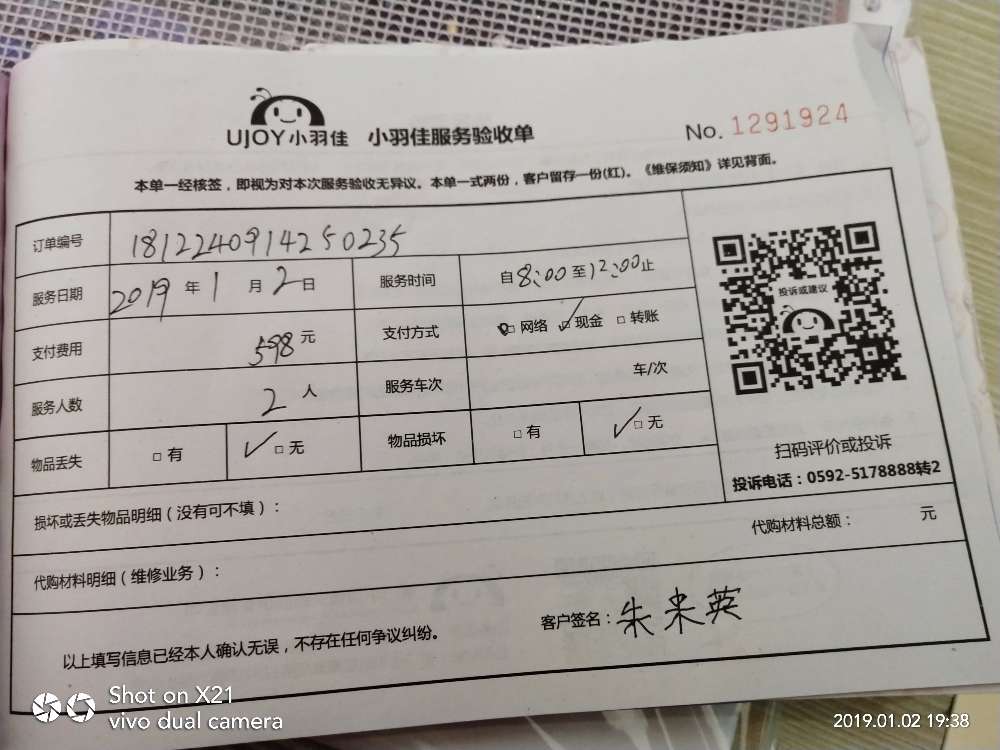 UJOY小羽佳 小羽佳服务验收单 No. 1291924
本单一经核签，即视为对本次服务验收无异议。本单一式两份，客户留存一份(红)。《维保须知》详见背面。
订单编号 1812240914250235
服务日期 2019 年 1 月 2 日 服务时间 自 8:00 至 12:00 止
支付费用 598 元 支付方式 □ 网络 ☑ 现金 □ 转账
服务人数 2 人 服务车次 车/次
物品丢失 □ 有 ✓□ 无 物品损坏 □ 有 ✓□ 无
投诉或建议
扫码评价或投诉
投诉电话：0592-5178888转2
损坏或丢失物品明细（没有可不填）：
代购材料总额： 元
代购材料明细（维修业务）：
以上填写信息已经本人确认无误，不存在任何争议纠纷。 客户签名：朱米英
Shot on X21
vivo dual camera
2019.01.02 19:38